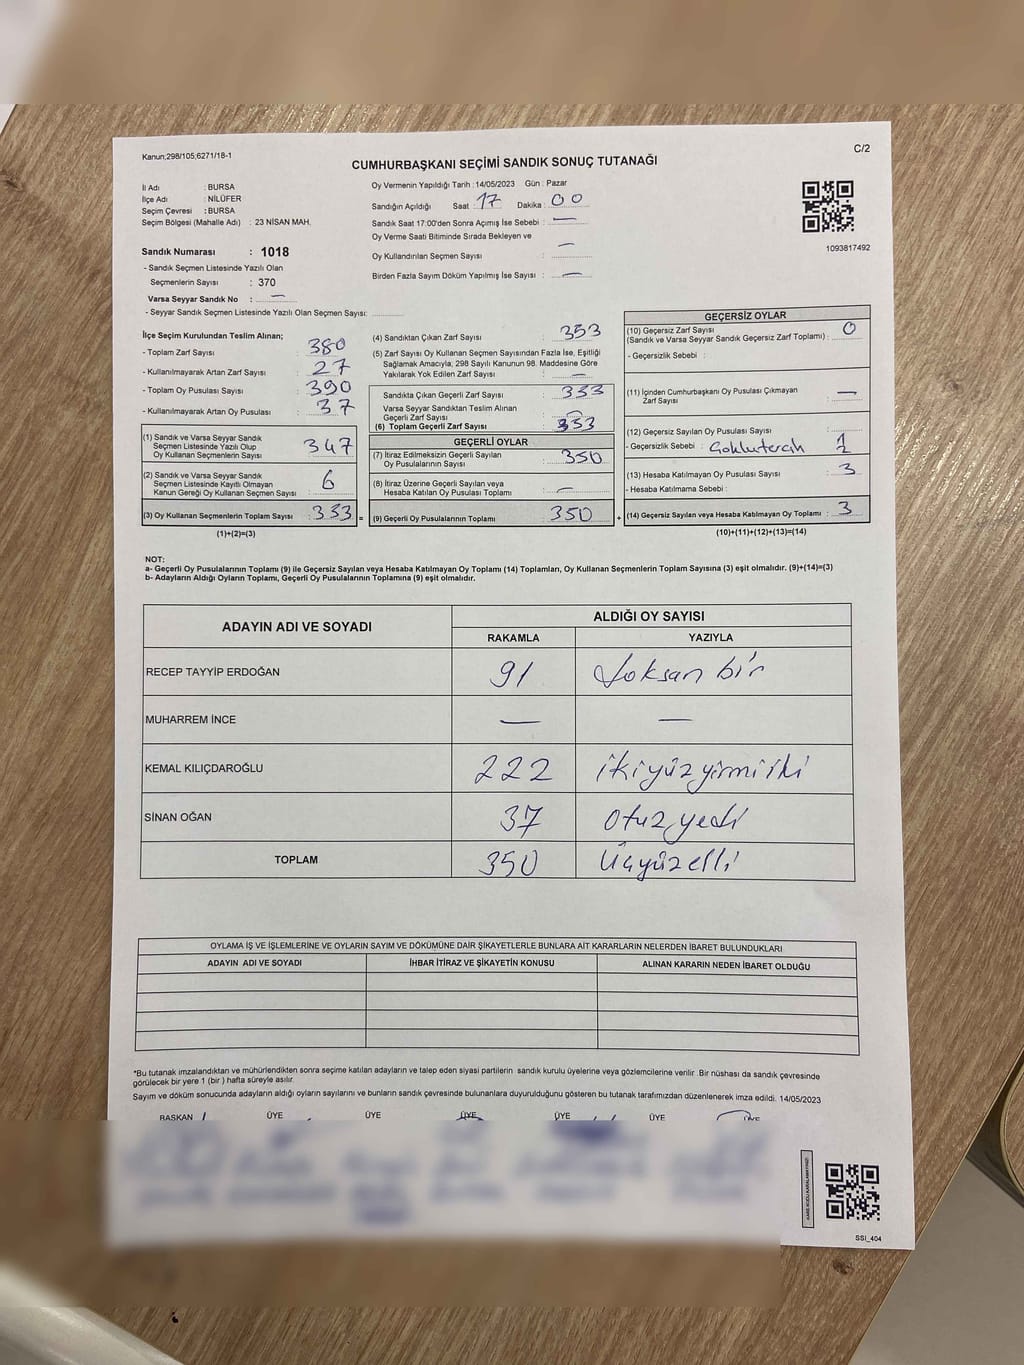 Kanun;298/105;6271/18-1
C/2
CUMHURBAŞKANI SEÇİMİ SANDIK SONUÇ TUTANAĞI
İl Adı : BURSA
İlçe Adı : NİLÜFER
Seçim Çevresi : BURSA
Seçim Bölgesi (Mahalle Adı) : 23 NİSAN MAH.
Sandık Numarası : 1018
- Sandık Seçmen Listesinde Yazılı Olan
Seçmenlerin Sayısı : 370
Varsa Seyyar Sandık No : —
- Seyyar Sandık Seçmen Listesinde Yazılı Olan Seçmen Sayısı:
Oy Vermenin Yapıldığı Tarih : 14/05/2023 Gün : Pazar
Sandığın Açıldığı Saat : 17 Dakika : 00
Sandık Saat 17:00'den Sonra Açımış İse Sebebi : —
Oy Verme Saati Bitiminde Sırada Bekleyen ve
Oy Kullandırılan Seçmen Sayısı : —
Birden Fazla Sayım Döküm Yapılmış İse Sayısı : —
1093817492
İlçe Seçim Kurulundan Teslim Alınan;
- Toplam Zarf Sayısı : 380
- Kullanılmayarak Artan Zarf Sayısı : 27
- Toplam Oy Pusulası Sayısı : 390
- Kullanılmayarak Artan Oy Pusulası : 37
(1) Sandık ve Varsa Seyyar Sandık
Seçmen Listesinde Yazılı Olup
Oy Kullanan Seçmenlerin Sayısı : 347
(2) Sandık ve Varsa Seyyar Sandık
Seçmen Listesinde Kayıtlı Olmayan
Kanun Gereği Oy Kullanan Seçmen Sayısı : 6
(3) Oy Kullanan Seçmenlerin Toplam Sayısı : 353 =
(1)+(2)=(3)
(4) Sandıktan Çıkan Zarf Sayısı : 353
(5) Zarf Sayısı Oy Kullanan Seçmen Sayısından Fazla İse, Eşitliği
Sağlamak Amacıyla, 298 Sayılı Kanunun 98. Maddesine Göre
Yakılarak Yok Edilen Zarf Sayısı : —
Sandıkta Çıkan Geçerli Zarf Sayısı : 353
Varsa Seyyar Sandıktan Teslim Alınan
Geçerli Zarf Sayısı : —
(6) Toplam Geçerli Zarf Sayısı : 353
GEÇERLİ OYLAR
(7) İtiraz Edilmeksizin Geçerli Sayılan
Oy Pusulalarının Sayısı : 350
(8) İtiraz Üzerine Geçerli Sayılan veya
Hesaba Katılan Oy Pusulası Toplamı : —
(9) Geçerli Oy Pusulalarının Toplamı : 350 +
GEÇERSİZ OYLAR
(10) Geçersiz Zarf Sayısı
(Sandık ve Varsa Seyyar Sandık Geçersiz Zarf Toplamı) : 0
- Geçersizlik Sebebi :
(11) İçinden Cumhurbaşkanı Oy Pusulası Çıkmayan
Zarf Sayısı : —
(12) Geçersiz Sayılan Oy Pusulası Sayısı :
- Geçersizlik Sebebi :
(13) Hesaba Katılmayan Oy Pusulası Sayısı : 3
- Hesaba Katılmama Sebebi :
(14) Geçersiz Sayılan veya Hesaba Katılmayan Oy Toplamı : 3
(10)+(11)+(12)+(13)=(14)
NOT:
a- Geçerli Oy Pusulalarının Toplamı (9) ile Geçersiz Sayılan veya Hesaba Katılmayan Oy Toplamı (14) Toplamları, Oy Kullanan Seçmenlerin Toplam Sayısına (3) eşit olmalıdır. (9)+(14)=(3)
b- Adayların Aldığı Oyların Toplamı, Geçerli Oy Pusulalarının Toplamına (9) eşit olmalıdır.
ADAYIN ADI VE SOYADI ALDIĞI OY SAYISI
RAKAMLA YAZIYLA
RECEP TAYYİP ERDOĞAN 91 doksan bir
MUHARREM İNCE — —
KEMAL KILIÇDAROĞLU 222 ikiyüzyirmiiki
SİNAN OĞAN 37 otuzyedi
TOPLAM 350 Üçyüzelli
OYLAMA İŞ VE İŞLEMLERİNE VE OYLARIN SAYIM VE DÖKÜMÜNE DAİR ŞİKAYETLERLE BUNLARA AİT KARARLARIN NELERDEN İBARET BULUNDUKLARI
ADAYIN ADI VE SOYADI İHBAR İTİRAZ VE ŞİKAYETİN KONUSU ALINAN KARARIN NEDEN İBARET OLDUĞU
*Bu tutanak imzalandıktan ve mühürlendikten sonra seçime katılan adayların ve talep eden siyasi partilerin sandık kurulu üyelerine veya gözlemcilerine verilir .Bir nüshası da sandık çevresinde
görülecek bir yere 1 (bir ) hafta süreyle asılır.
Sayım ve döküm sonucunda adayların aldığı oyların sayılarını ve bunların sandık çevresinde bulunanlara duyurulduğunu gösteren bu tutanak tarafımızdan düzenlenerek imza edildi. 14/05/2023
BAŞKAN ÜYE ÜYE ÜYE ÜYE ÜYE ÜYE
SSİ_404